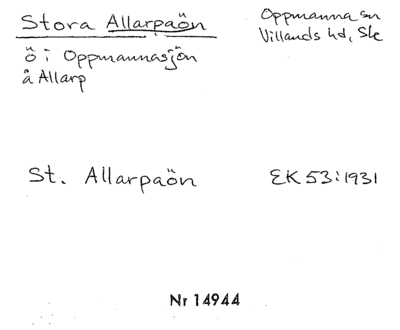 Stora Allarpaön
Oppmanna sn
Villands hd, Ske
ö i Oppmannasjön
å Allarp
St. Allarpaön
EK 53:1931
Nr 14944